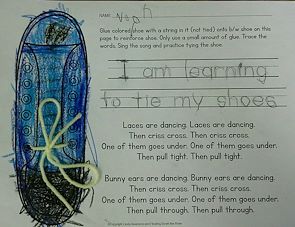 NAME: Noah
Glue colored shoe with a string in it (not tied) onto b/w shoe on this
page to reinforce shoe. Only use a small amount of glue. Trace the
words. Sing the song and practice tying the shoe.
I am learning
to tie my shoes
Laces are dancing. Laces are dancing.
Then criss cross. Then criss cross.
One of them goes under. One of them goes under.
Then pull tight. Then pull tight.
Bunny ears are dancing. Bunny ears are dancing.
Then criss cross. Then criss cross.
One of them goes under. One of them goes under.
Then pull through. Then pull through.